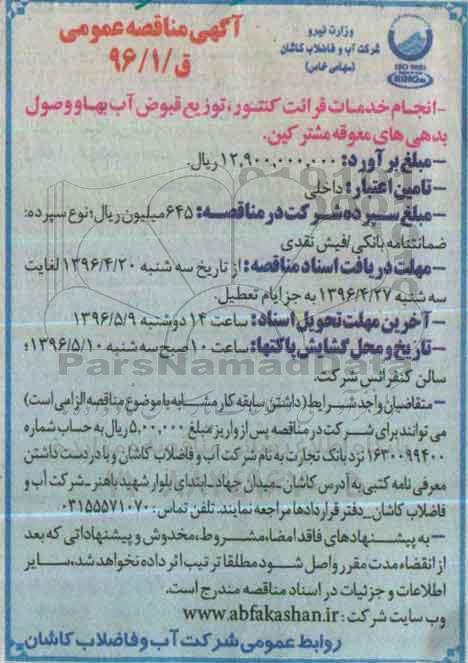 آگهی مناقصه عمومی
ق/۹۶/۱
وزارت نیرو
شرکت آب و فاضلاب کاشان
(سهامی خاص)
ISO 9001
-انجام خدمات قرائت کنتور، توزیع قبوض آب بها و وصول
بدهی های معوقه مشترکین.
-مبلغ برآورد: ۱۲,۹۰۰,۰۰۰,۰۰۰ ریال.
-تامین اعتبار: داخلی
-مبلغ سپرده شرکت در مناقصه: ۶۴۵ میلیون ریال؛ نوع سپرده:
ضمانتنامه بانکی/فیش نقدی
-مهلت دریافت اسناد مناقصه: از تاریخ سه شنبه ۱۳۹۶/۴/۲۰ لغایت
سه شنبه ۱۳۹۶/۴/۲۷ به جز ایام تعطیل.
-آخرین مهلت تحویل اسناد: ساعت ۱۴ دوشنبه ۱۳۹۶/۵/۹
-تاریخ و محل گشایش پاکتها: ساعت ۱۰ صبح سه شنبه ۱۳۹۶/۵/۱۰؛
سالن کنفرانس شرکت.
ParsNamadData
-متقاضیان واجد شرایط (داشتن سابقه کار مشابه با موضوع مناقصه الزامی است)
می توانند برای شرکت در مناقصه پس از واریز مبلغ ۵۰۰,۰۰۰ ریال به حساب شماره
۱۶۳۰۰۹۹۴۰۰ نزد بانک تجارت به نام شرکت آب و فاضلاب کاشان و با در دست داشتن
معرفی نامه کتبی به آدرس کاشان-میدان جهاد-ابتدای بلوار شهید باهنر-شرکت آب و
فاضلاب کاشان-دفتر قراردادها مراجعه نمایند. تلفن تماس: ۰۳۱۵۵۵۷۱۰۷۰
-به پیشنهادهای فاقد امضا، مشروط، مخدوش و پیشنهاداتی که بعد
از انقضاء مدت مقرر واصل شود مطلقا ترتیب اثر داده نخواهد شد، سایر
اطلاعات و جزئیات در اسناد مناقصه مندرج است.
وب سایت شرکت: www.abfakashan.ir
روابط عمومی شرکت آب و فاضلاب کاشان